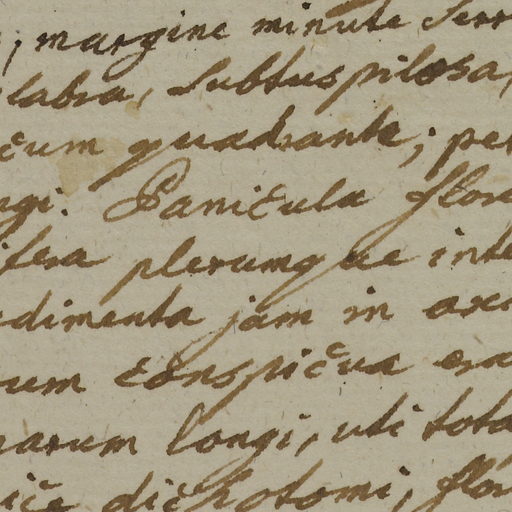 ; margine minute serr
labra, subtus pilosa,
cum quadrante; pe
gi. Panicula flor
ifera plerumque inte
dimenta jam in ax
rum conspicua era
narum longi, uti tota
ice dichotomi, flor